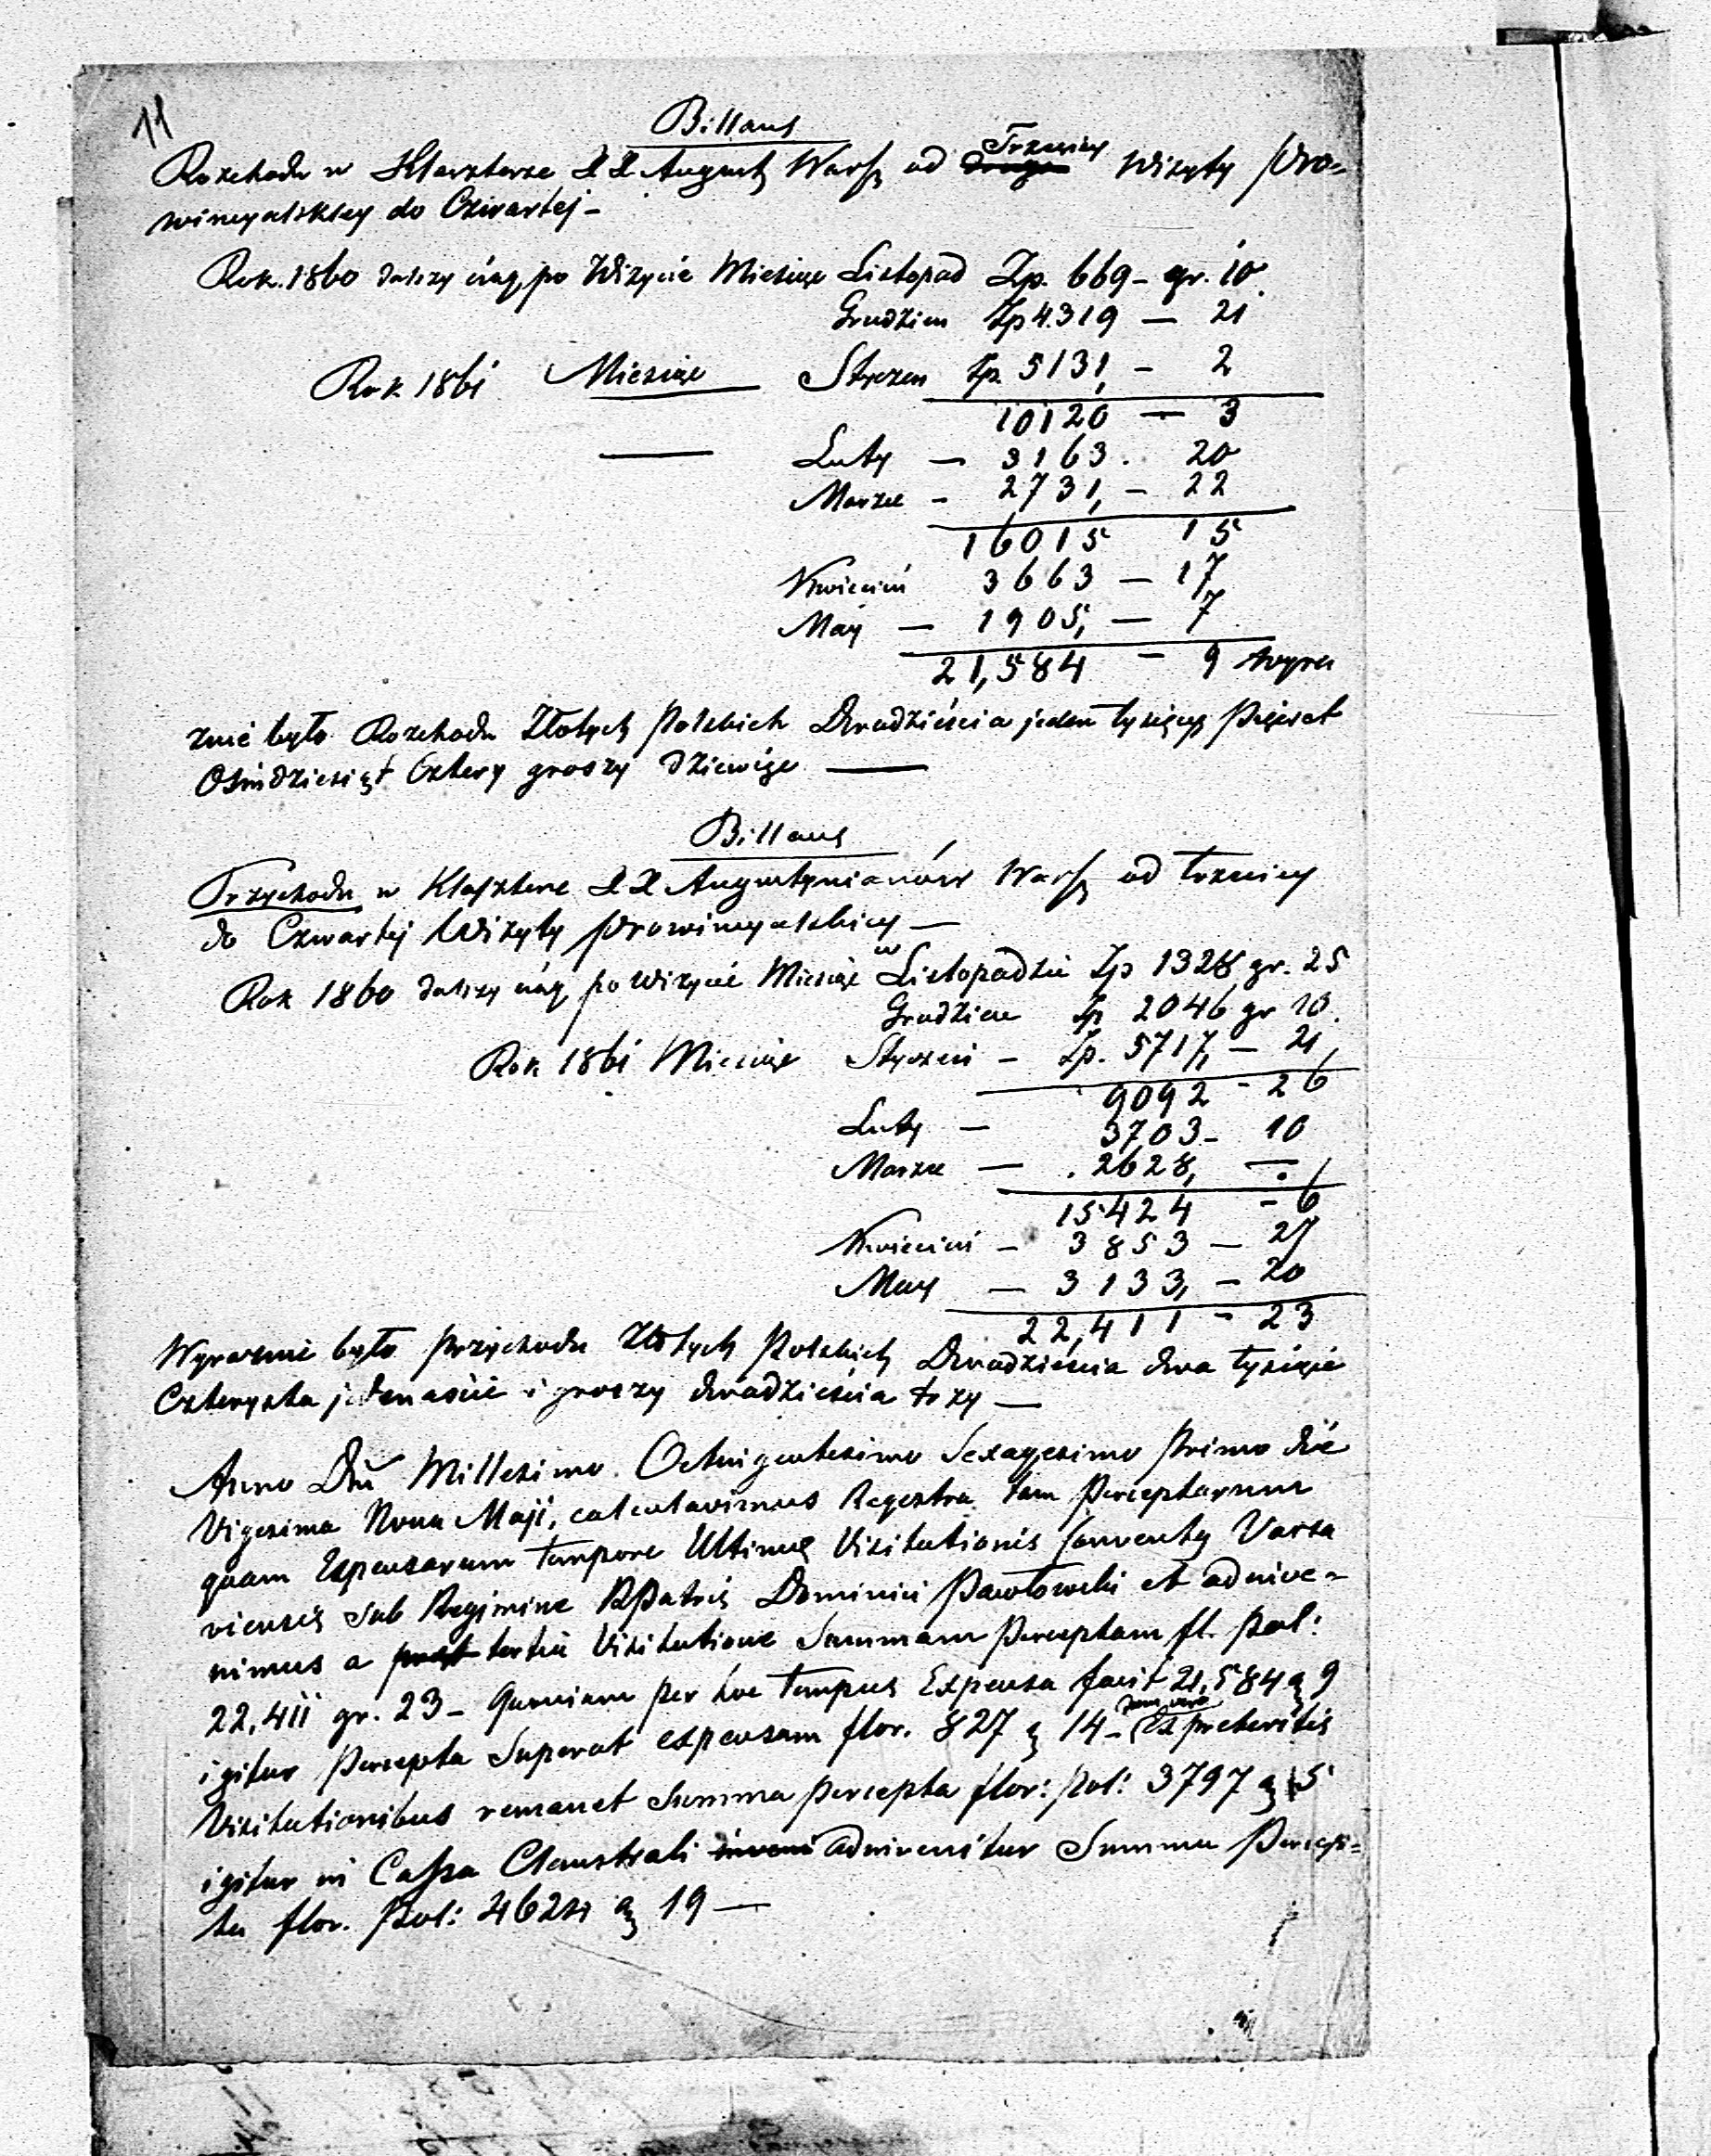 11
Billans
Rozchodu w Klasztorze XX August Warsz od Trzeciey Wizyty Pro-
wincyalskiey do Czwartéj -
Rok. 1860 dalszy ciąg po Wizycie Miesiąc Listopad Zp. 669 - gr. 10.
Grudzien Zp 4319 — 21
Rok 1861 Miesiąc — Styczen Zp. 5131, - 2
10120 — 3
— Luty — 3163. 20
Marzec - 2731, - 22
16015 15
Kwiecień 3663 — 17
Maÿ — 1905, — 7
21,584 — 9 wyra
znie było Rozchodu Złotych Polskich Dwadzieścia jeden tysięcy Pięćset
Ośmdziesiąt Cztery groszy dziewięc —
Billans
Przychodu w Klasztorze XX Augustynianów Warsz od trzeciey
do Czwartej Wizyty Prowincyalskiey —
Rok 1860 dalszy ciąg po wizycie Miesiąc w Listopadzie Zp 1328 gr. 25
Grudzien Zp 2046 gr 10.
Rok 1861 Miesiąc Styczeń - Zp. 5717, — 21
9092 - 26
Luty — 3703 - 10
Marzec — . 2628, —
15424 - 6
Kwiecień - 3853 — 27
May — 3133, - 20
22,411 - 23
Wyraznie było przychodu Złotych Polskich Dwadzieścia dwa tysiące
Czterysta jedenaście i groszy dwadzieścia trzy —
Anno Dñi Millesimo Octingentesimo Sexagesimo Primo die
Vigesima Nona Maji, calculavimus Regestra tam Perceptarum
quam Expensarum tempore Ultimæ Visitationis Conventus Varsa
viensis sub Regimine RPatris Dominici Pawłowski et adnive-
nimus a post tertia Visitatione Summam Perceptam fl. pol:
22,411 gr. 23 - Quoniam per hoc tempus Expensa facit 21,584 g 9
igitur Percepta Superat expensam flor. 827 g 14 - Jam vero Ex preteritis
Visitationibus remanet Summa percepta flor: pol: 3797 g 5
igitur in Cassa Claustrali inveni adnivenitur Summa Percep-
ta flor. Pol: 4624 g 19 —